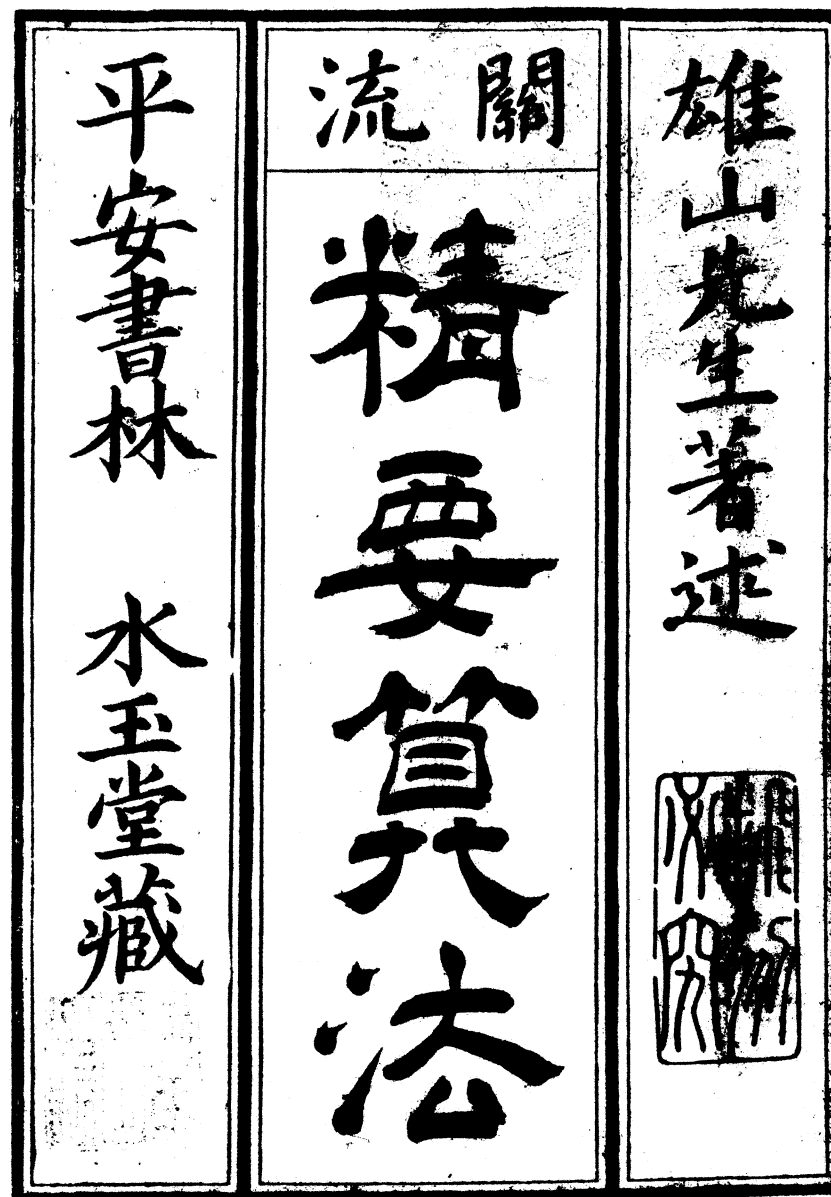 雄山先生著述
關流
精要算法
平安書林 水玉堂藏